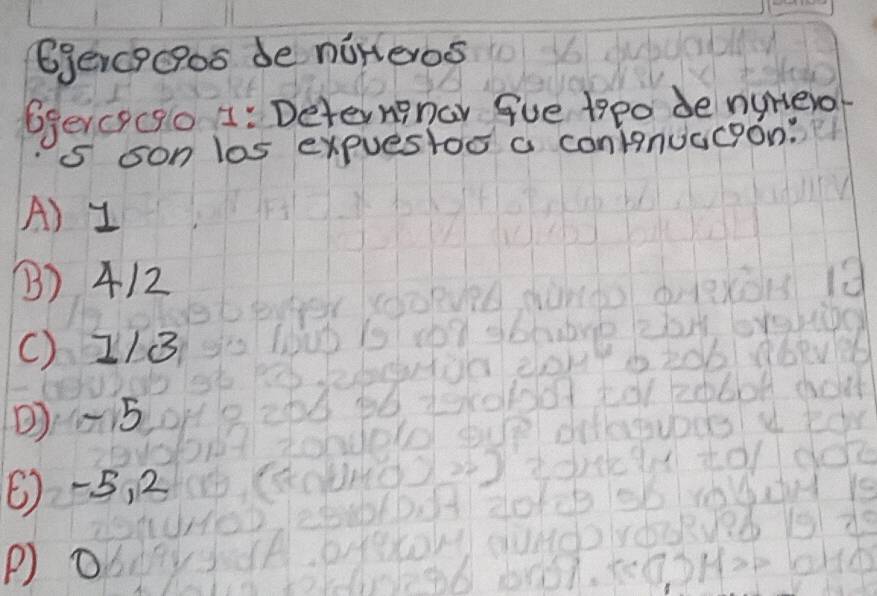 Ejercicios de números
Ejercicio 1: Determinar que tipo de numero-
s son los expuestos a continuacion:
A) 1
B) 4/2
C) 1/3
D) -5
E) -5,2
F) 0